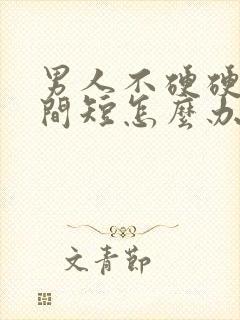 男人不硬硬
間短怎麼办
文青節